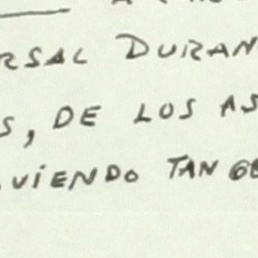 RSAL DURAN
S, DE LOS AS
VIENDO TAN GE